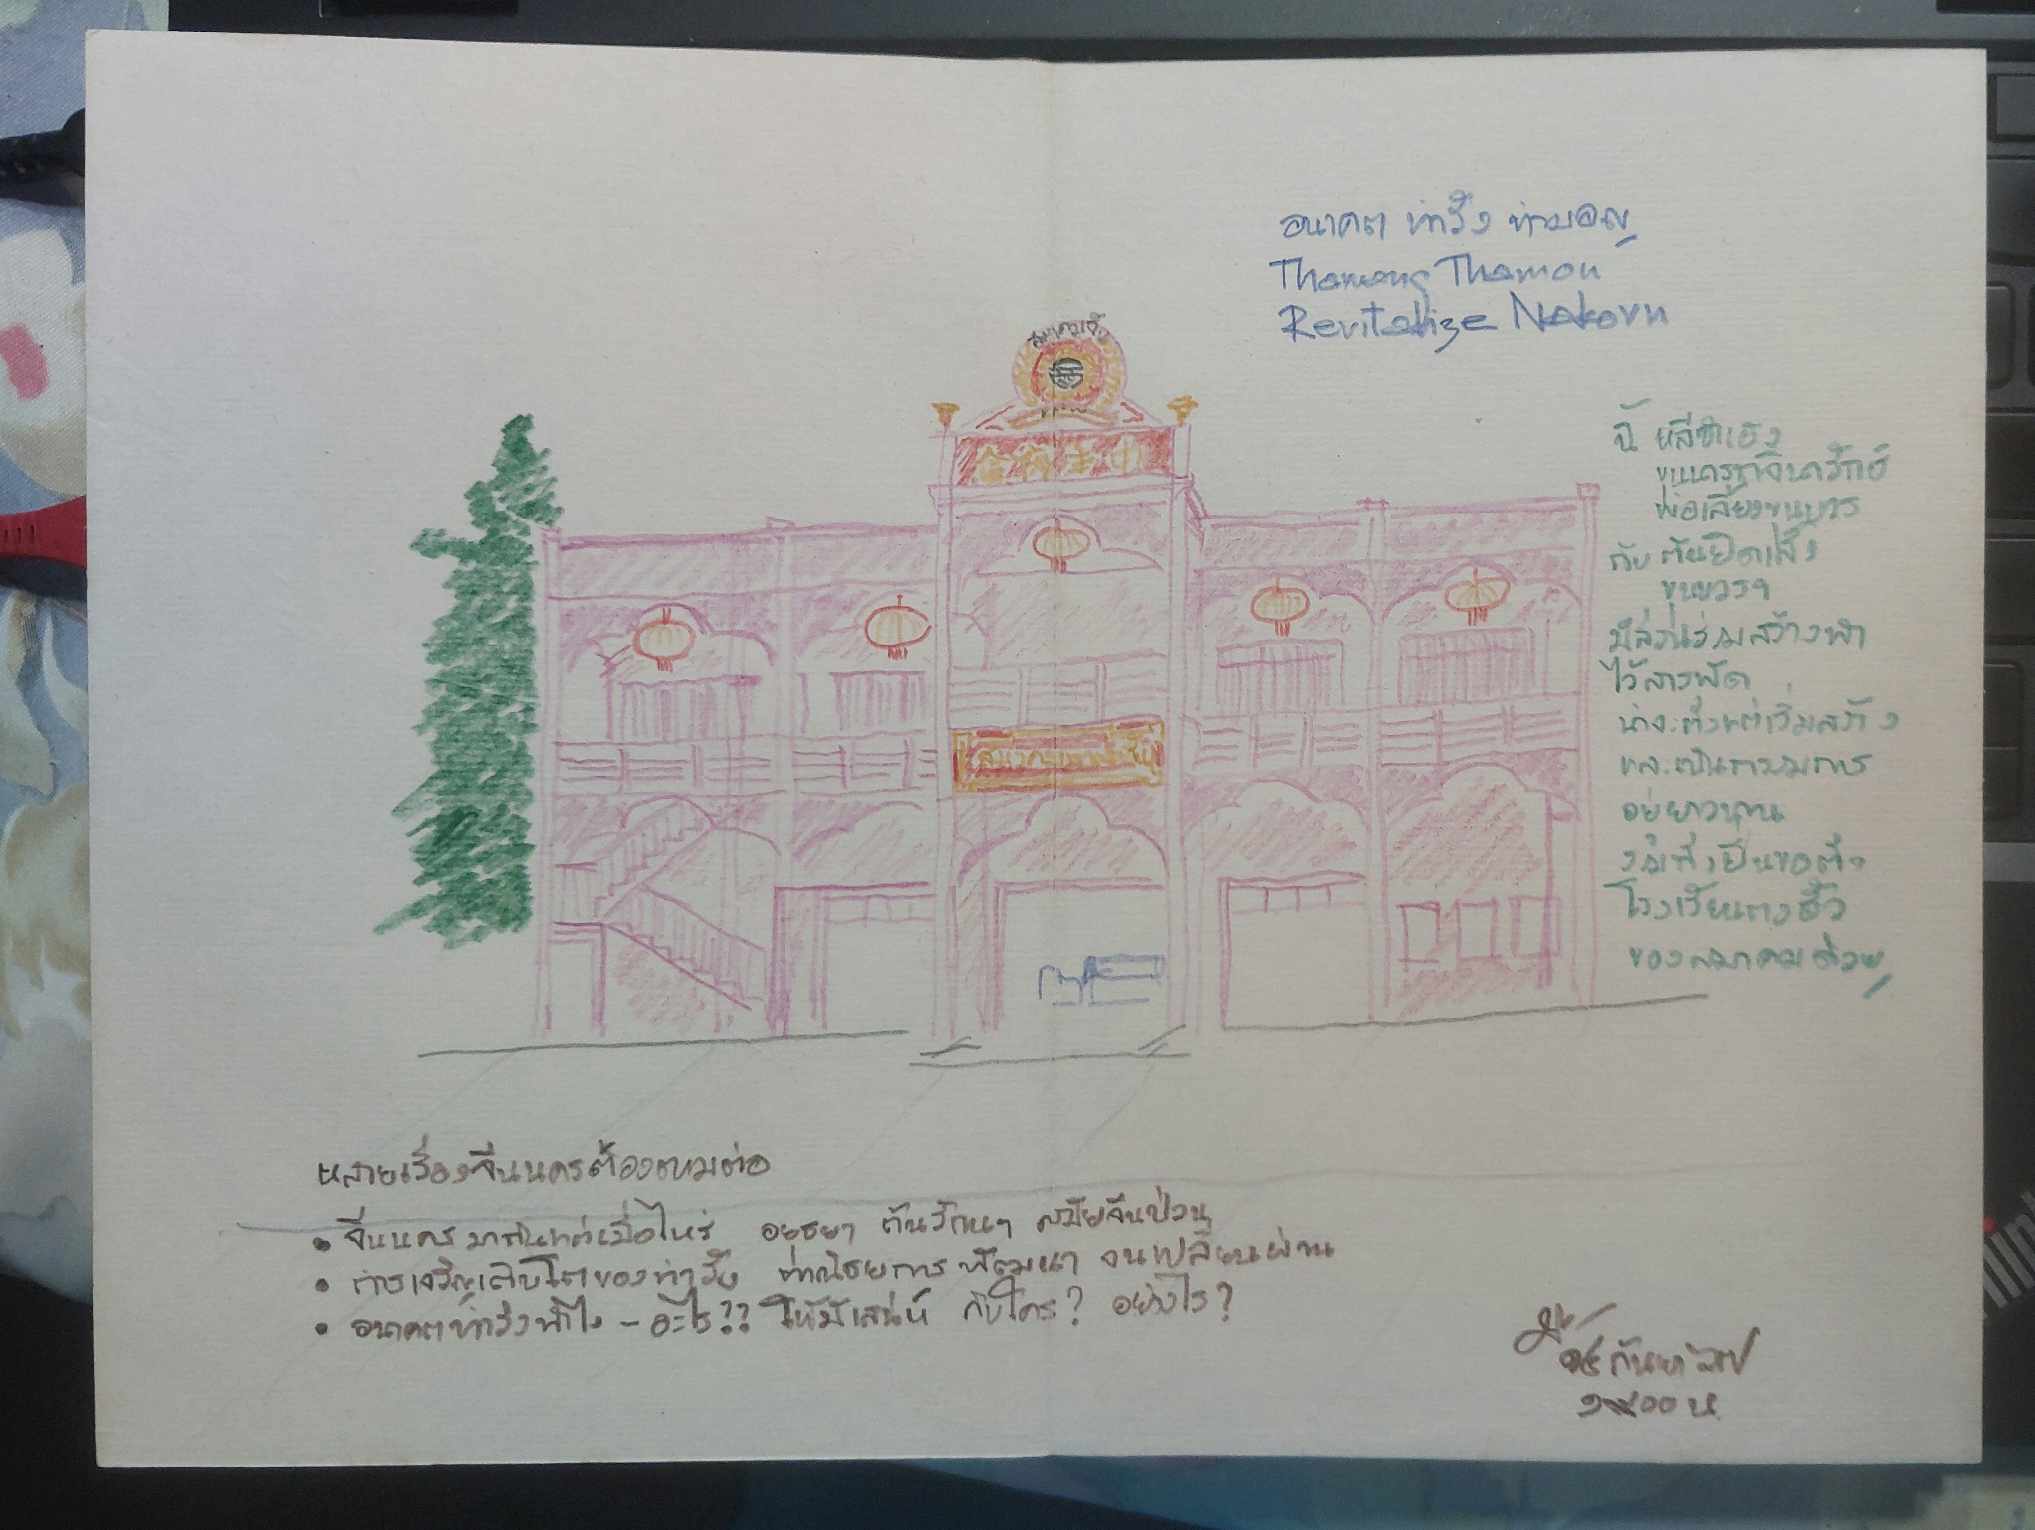 อนาคต ท่าวัง ท่ามอญ
Thawang Thamon
Revitalize Nakorn
สมาคมจีน
中華商會
สมาคมพาณิชย์จีน
นี้ หลีซำเฮง
ขุนนครฐาจีนารักษ์
พ่อเลี้ยงขุนบวร
กับ ตันปิดเส็ง
ขุนบวรฯ
มีส่วนร่วมสร้างทำ
ไว้สารพัด
น่าจะตั้งแต่เริ่มสร้าง
และเป็นกรรมการ
อยู่ยาวนาน
โรงเรียน
ของสมาคมด้วย
หลายเรื่องจีนนครต้องตามต่อ
• จีนนครมากันแต่เมื่อไหร่ อยุธยา ต้นรัตนฯ สมัยจีนป่วน
• การเจริญเติบโตของท่าวัง พาณิชยการ พัฒนา จนเปลี่ยนผ่าน
• อนาคตท่าวังทำไง - อะไร?? ให้มีเสน่ห์ กับใคร? อย่างไร?
๑๕ กันยา
๑๙๐๐ น.